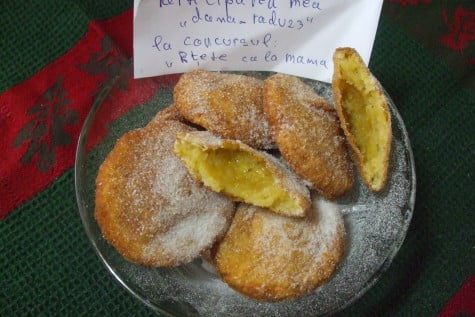 participarea mea
"dana-radu23"
la concursul:
"Rețete ca la mama